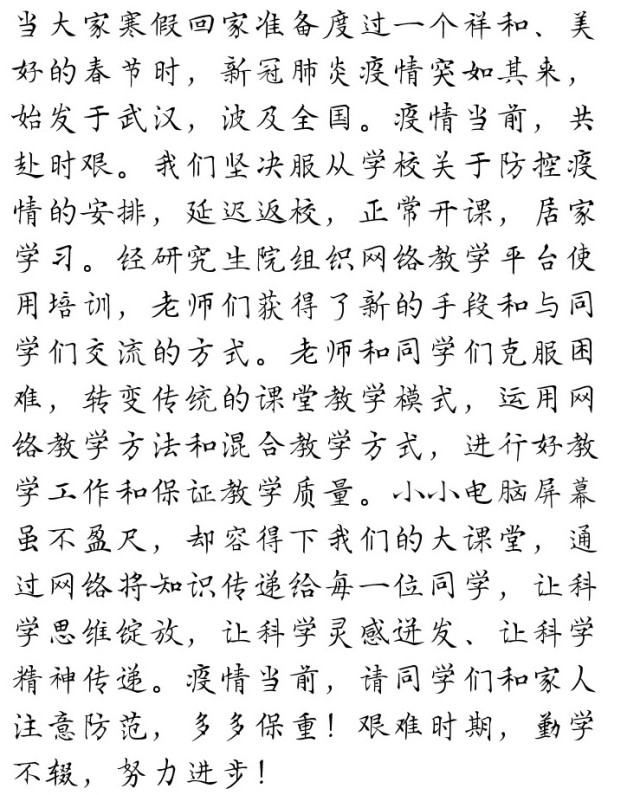 当大家寒假回家准备度过一个祥和、美
好的春节时，新冠肺炎疫情突如其来，
始发于武汉，波及全国。疫情当前，共
赴时艰。我们坚决服从学校关于防控疫
情的安排，延迟返校，正常开课，居家
学习。经研究生院组织网络教学平台使
用培训，老师们获得了新的手段和与同
学们交流的方式。老师和同学们克服困
难，转变传统的课堂教学模式，运用网
络教学方法和混合教学方式，进行好教
学工作和保证教学质量。小小电脑屏幕
虽不盈尺，却容得下我们的大课堂，通
过网络将知识传递给每一位同学，让科
学思维绽放，让科学灵感迸发、让科学
精神传递。疫情当前，请同学们和家人
注意防范，多多保重！艰难时期，勤学
不辍，努力进步！